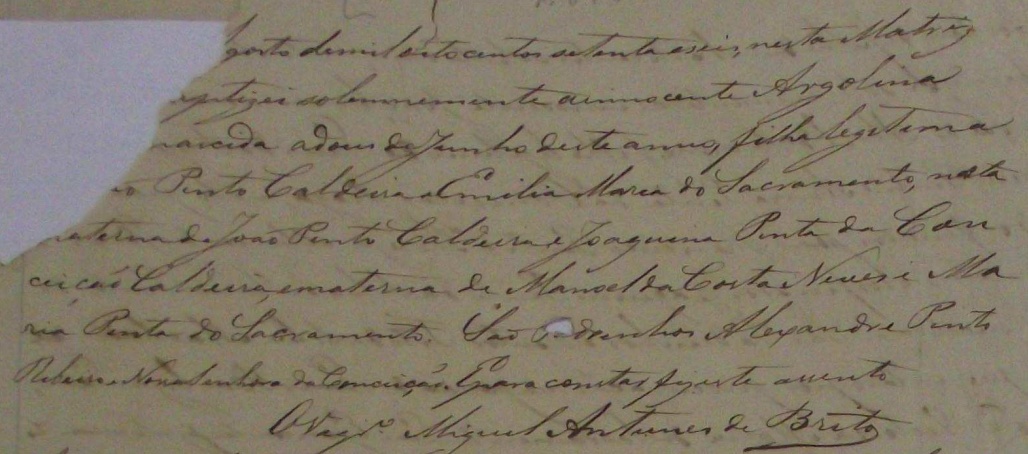 gosto de mil oito centos setenta e seis, nesta Matriz
aptizei solemnemente a innocente Argolina
nascida a dous de Junho deste anno, filha legitima
Pinto Caldeira e Emilia Maria do Sacramento, neta
paterna de João Pinto Caldeira e Joaquina Pinta da Con
ceição Caldeira, e materna de Manoel da Costa Neves e Ma
ria Pinta do Sacramento. São Padrinhos Alexandre Pinto
Ribeiro e Nossa Senhora da Conceição. E para constar fiz este assento
O Vigr.º Miguel Antunes de Brito